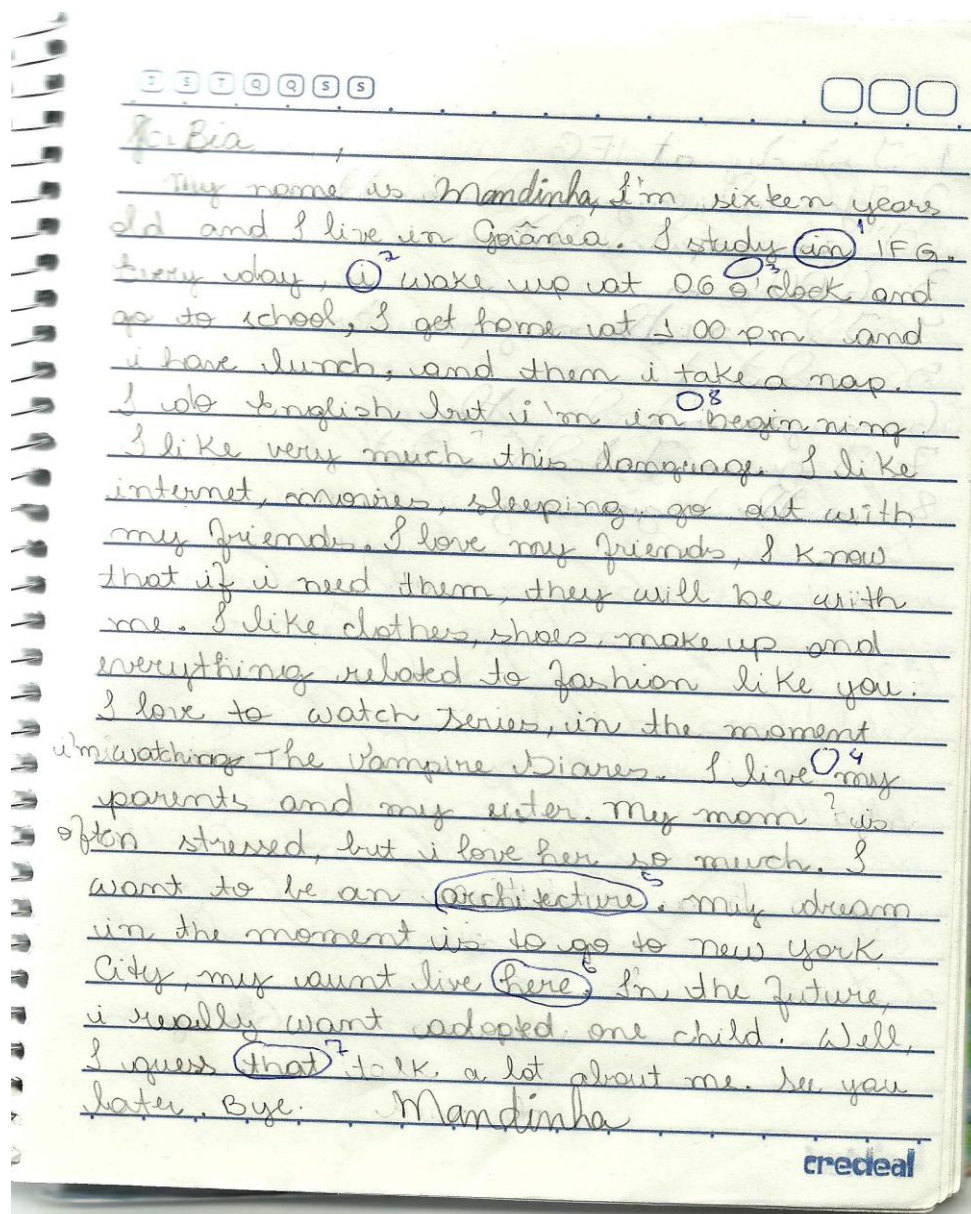 D S T Q Q S S
Bia,
My name is Mandinha, I'm sixteen years
old and I live in Goiânia. I study in 1 IFG.
Every day, i 2 wake up at 06 3 o'clock and
go to school, I get home at 1 00 pm and
i have lunch, and then i take a nap.
I do English but i'm in 8 beginning
I like very much this language. I like
internet, movies, sleeping, go out with
my friends. I love my friends, I know
that if i need them, they will be with
me. I like clothes, shoes, make up and
everything related to fashion like you.
I love to watch series, in the moment
i'm watching The Vampire Diares. I live 4 my
parents and my sister. My mom ? is
often stressed, but i love her so much. I
want to be an architecture 5. My dream
in the moment is to go to new york
City, my aunt live here 6. In the future,
i really want adopted one child. Well,
I guess that 7 talk a lot about me. See you
later. Bye. Mandinha
credeal